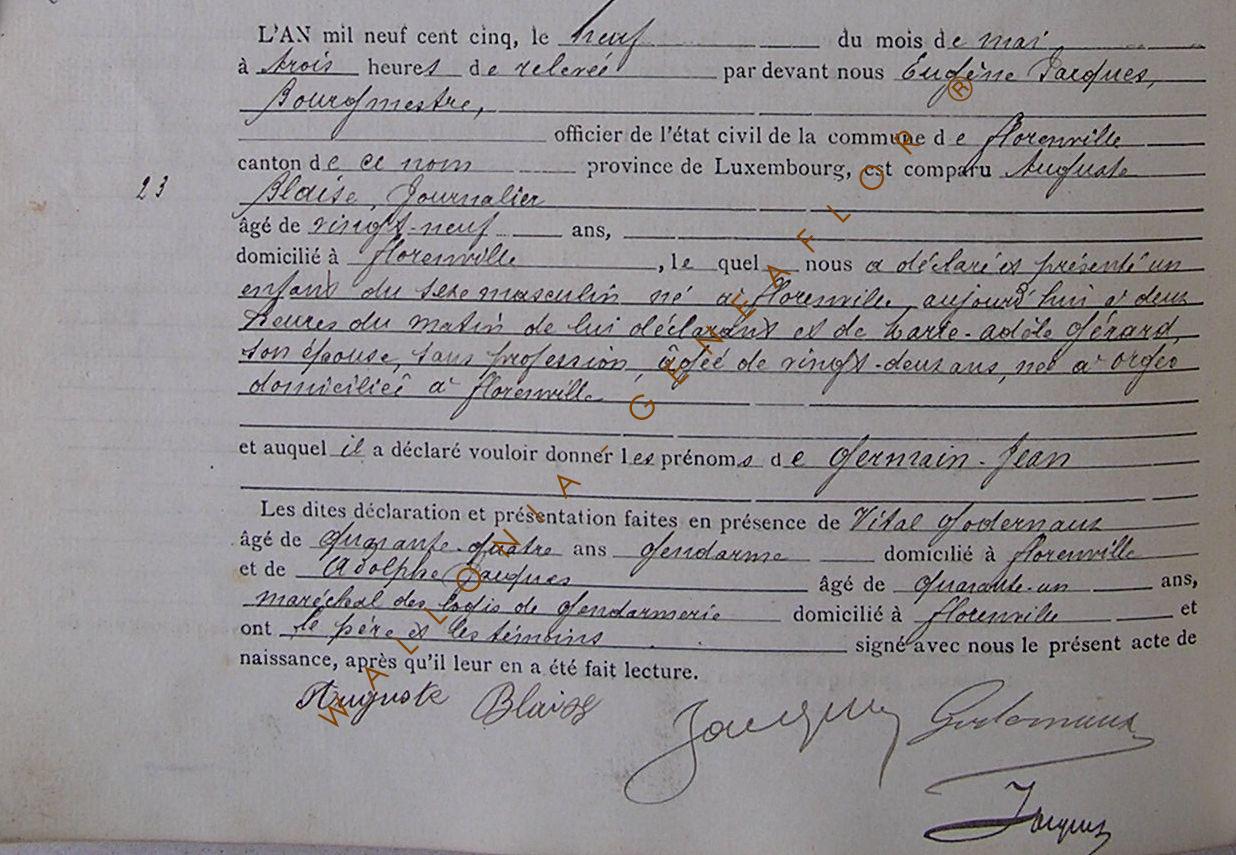 L'AN mil neuf cent cinq, le neuf du mois de mai
à trois heures de relevée par devant nous Eugène Jacques,
Bourgmestre,
officier de l'état civil de la commune de Florenville
canton de ce nom province de Luxembourg, est comparu Auguste
23 Blaise, Journalier
âgé de vingt-neuf ans,
domicilié à Florenville, le quel nous a déclaré et présenté un
enfant du sexe masculin né à Florenville aujourd'hui à deux
heures du matin de lui déclarant et de Marie-Adèle Gérard,
son épouse, sans profession, âgée de vingt-deux ans, née à Orgéo
domiciliée à Florenville
et auquel il a déclaré vouloir donner les prénoms de Germain-Jean
Les dites déclaration et présentation faites en présence de Vital Godernaux
âgé de quarante-quatre ans gendarme domicilié à Florenville
et de Adolphe Jacques âgé de quarante-un ans,
maréchal des logis de gendarmerie domicilié à Florenville et
ont le père et les témoins signé avec nous le présent acte de
naissance, après qu'il leur en a été fait lecture.
Auguste Blaise Jacques Godernaux
Jacques
WALLONIA-GENEAFLOR ®